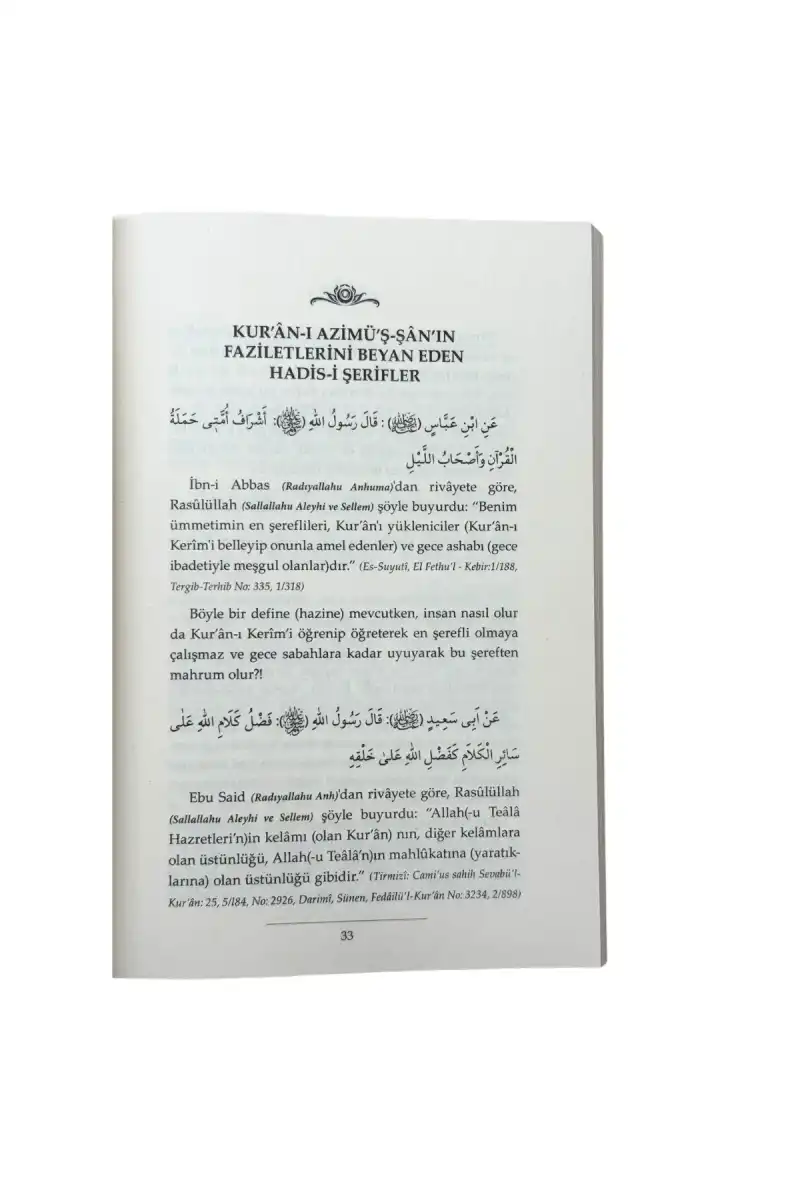 KUR'ÂN-I AZİMÜ'Ş-ŞÂN'IN
FAZİLETLERİNİ BEYAN EDEN
HADİS-İ ŞERİFLER
عَنِ ابْنِ عَبَّاسٍ (): قَالَ رَسُولُ اللهِ (ﷺ): أَشْرَافُ أُمَّتِى حَمَلَةُ
الْقُرْآنِ وَأَصْحَابُ اللَّيْلِ
İbn-i Abbas (Radıyallahu Anhuma)'dan rivâyete göre,
Rasûlüllah (Sallallahu Aleyhi ve Sellem) şöyle buyurdu: "Benim
ümmetimin en şereflileri, Kur'ân'ı yükleniciler (Kur'ân-ı
Kerîm'i belleyip onunla amel edenler) ve gece ashabı (gece
ibadetiyle meşgul olanlar)dır." (Es-Suyutî, El Fethu'l - Kebir:1/188,
Tergib-Terhib No: 335, 1/318)
Böyle bir define (hazine) mevcutken, insan nasıl olur
da Kur'ân-ı Kerîm'i öğrenip öğreterek en şerefli olmaya
çalışmaz ve gece sabahlara kadar uyuyarak bu şereften
mahrum olur?!
عَنْ اَبِى سَعِيدٍ (): قَالَ رَسُولُ اللهِ (ﷺ): فَضْلُ كَلَامِ اللهِ عَلَى
سَائِرِ الْكَلَامِ كَفَضْلِ اللهِ عَلَى خَلْقِهِ
Ebu Said (Radıyallahu Anh)'dan rivâyete göre, Rasûlüllah
(Sallallahu Aleyhi ve Sellem) şöyle buyurdu: "Allah(-u Teâlâ
Hazretleri'n)in kelâmı (olan Kur'ân) nın, diğer kelâmlara
olan üstünlüğü, Allah(-u Teâlâ'n)ın mahlûkatına (yaratık-
larına) olan üstünlüğü gibidir." (Tirmizî: Cami'us sahih Sevabü'l-
Kur'ân: 25, 5/184, No: 2926, Darimî, Sünen, Fedâilü'l-Kur'ân No: 3234, 2/898)
33